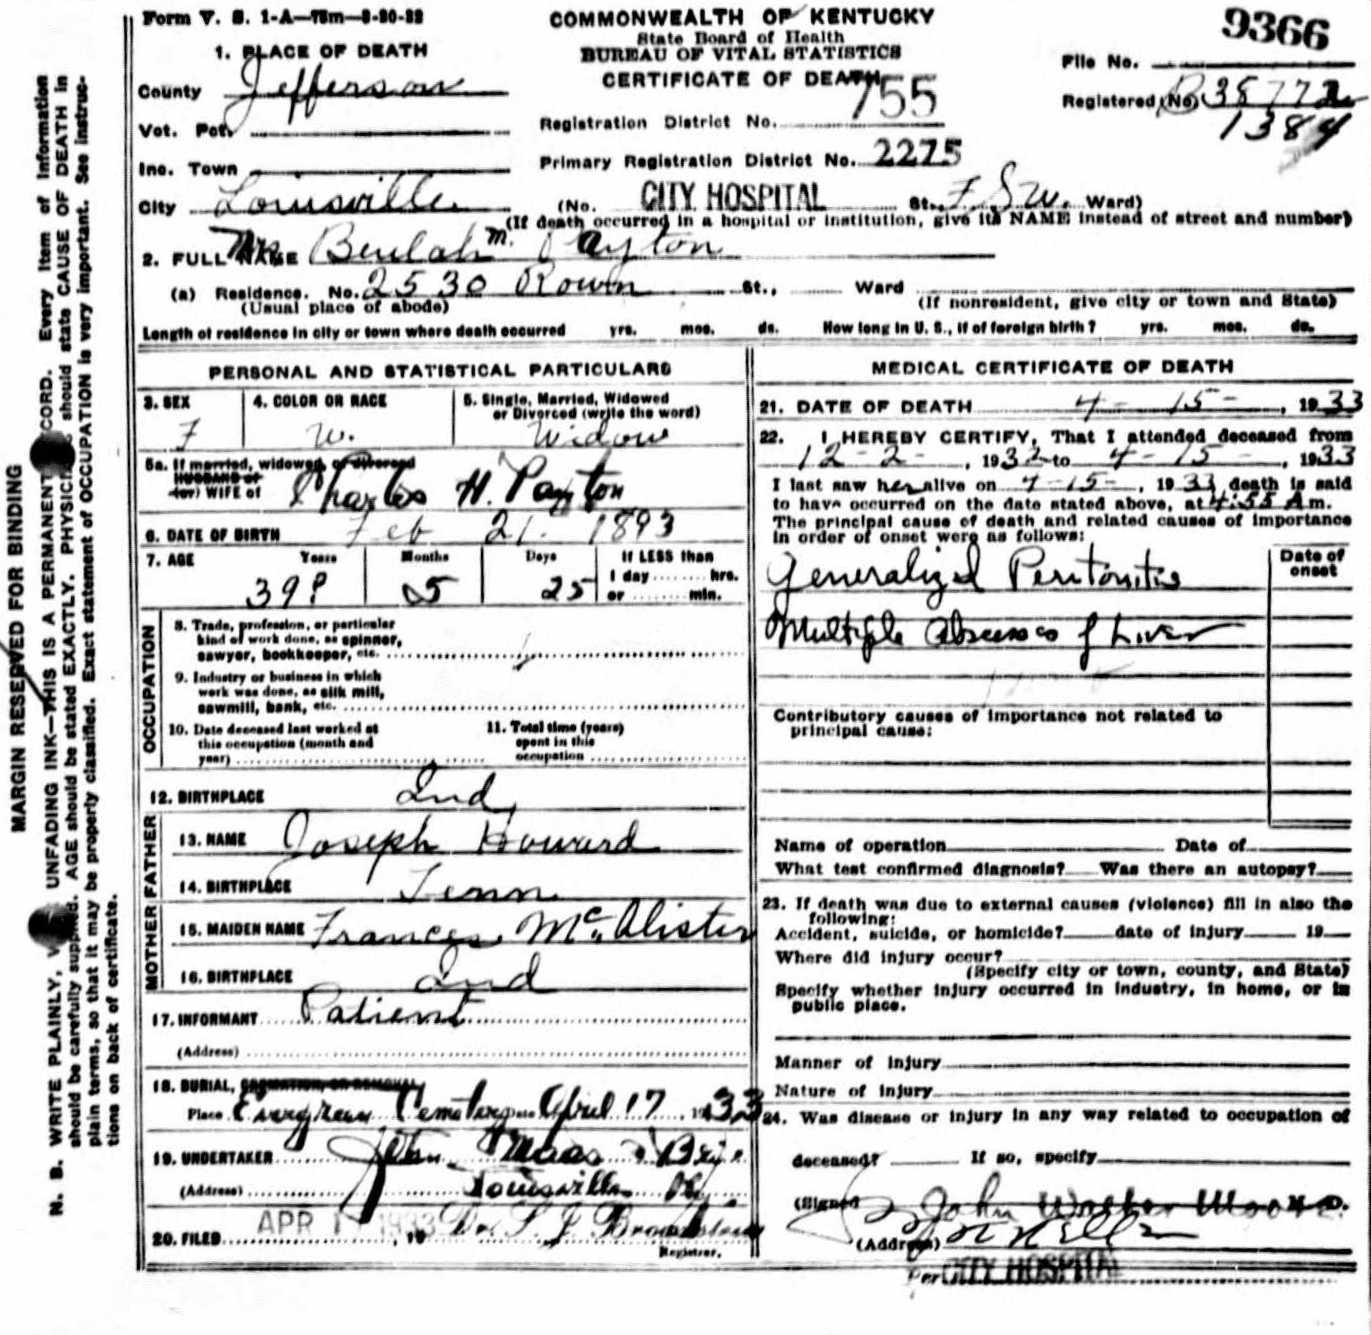 Form V. S. 1-A—75m—8-20-32
COMMONWEALTH OF KENTUCKY
State Board of Health
BUREAU OF VITAL STATISTICS
CERTIFICATE OF DEATH
9366
File No.
Registered No.
1384
1. PLACE OF DEATH
County Jefferson
Vot. Pct.
Inc. Town
City Louisville
Registration District No. 755
Primary Registration District No. 2275
(No. CITY HOSPITAL St., Ward)
(If death occurred in a hospital or institution, give its NAME instead of street and number)
2. FULL NAME Mrs Beulah M. Payton
(a) Residence. No. 2530 Rowan St., Ward
(Usual place of abode)
(If nonresident, give city or town and State)
Length of residence in city or town where death occurred yrs. mos. ds. How long in U. S., if of foreign birth? yrs. mos. ds.
PERSONAL AND STATISTICAL PARTICULARS
3. SEX F
4. COLOR OR RACE W.
5. Single, Married, Widowed or Divorced (write the word) Widow
5a. If married, widowed, or divorced
HUSBAND of
(or) WIFE of Charles H. Payton
6. DATE OF BIRTH Feb 21. 1893
7. AGE Years Months Days If LESS than
39? 5 25 1 day hrs.
or min.
OCCUPATION
8. Trade, profession, or particular
kind of work done, as spinner,
sawyer, bookkeeper, etc.
9. Industry or business in which
work was done, as silk mill,
sawmill, bank, etc.
10. Date deceased last worked at
this occupation (month and
year)
11. Total time (years)
spent in this
occupation
12. BIRTHPLACE Ind
FATHER
13. NAME Joseph Howard
14. BIRTHPLACE Tenn
MOTHER
15. MAIDEN NAME Frances McAlister
16. BIRTHPLACE Ind
17. INFORMANT Patient
(Address)
18. BURIAL, CREMATION, OR REMOVAL
Place Evergreen Cemetery Date April 17, 1933
19. UNDERTAKER John Maas & Bro
(Address) Louisville Ky
20. FILED APR 17 1933
Registrar.
MEDICAL CERTIFICATE OF DEATH
21. DATE OF DEATH 4-15-, 1933
22. I HEREBY CERTIFY, That I attended deceased from
12-2-, 1932 to 4-15-, 1933
I last saw her alive on 4-15-, 1933 death is said
to have occurred on the date stated above, at 4:55 A m.
The principal cause of death and related causes of importance
in order of onset were as follows:
Date of onset
Generalized Peritonitis
Multiple Abscesses of Liver
Contributory causes of importance not related to
principal cause:
Name of operation Date of
What test confirmed diagnosis? Was there an autopsy?
23. If death was due to external causes (violence) fill in also the
following:
Accident, suicide, or homicide? date of injury 19
Where did injury occur?
(Specify city or town, county, and State)
Specify whether injury occurred in industry, in home, or in
public place.
Manner of injury
Nature of injury
24. Was disease or injury in any way related to occupation of
deceased? If so, specify
(Signed John Walker Moore M. D.
(Address)
Per CITY HOSPITAL
MARGIN RESERVED FOR BINDING
N. B. WRITE PLAINLY, UNFADING INK—THIS IS A PERMANENT RECORD. Every item of information
should be carefully supplied. AGE should be stated EXACTLY. PHYSICIANS should state CAUSE OF DEATH in
plain terms, so that it may be properly classified. Exact statement of OCCUPATION is very important. See instruc-
tions on back of certificate.